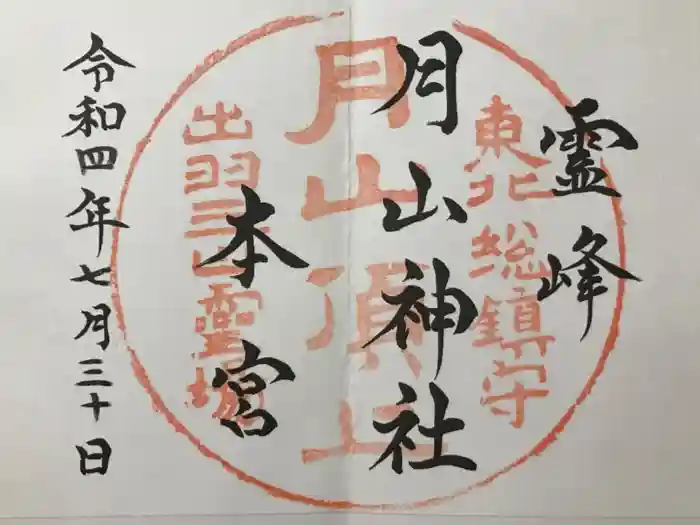 霊峰
東北総鎮守
月山神社
月山頂上
本宮
出羽三山霊場
令和四年七月三十日